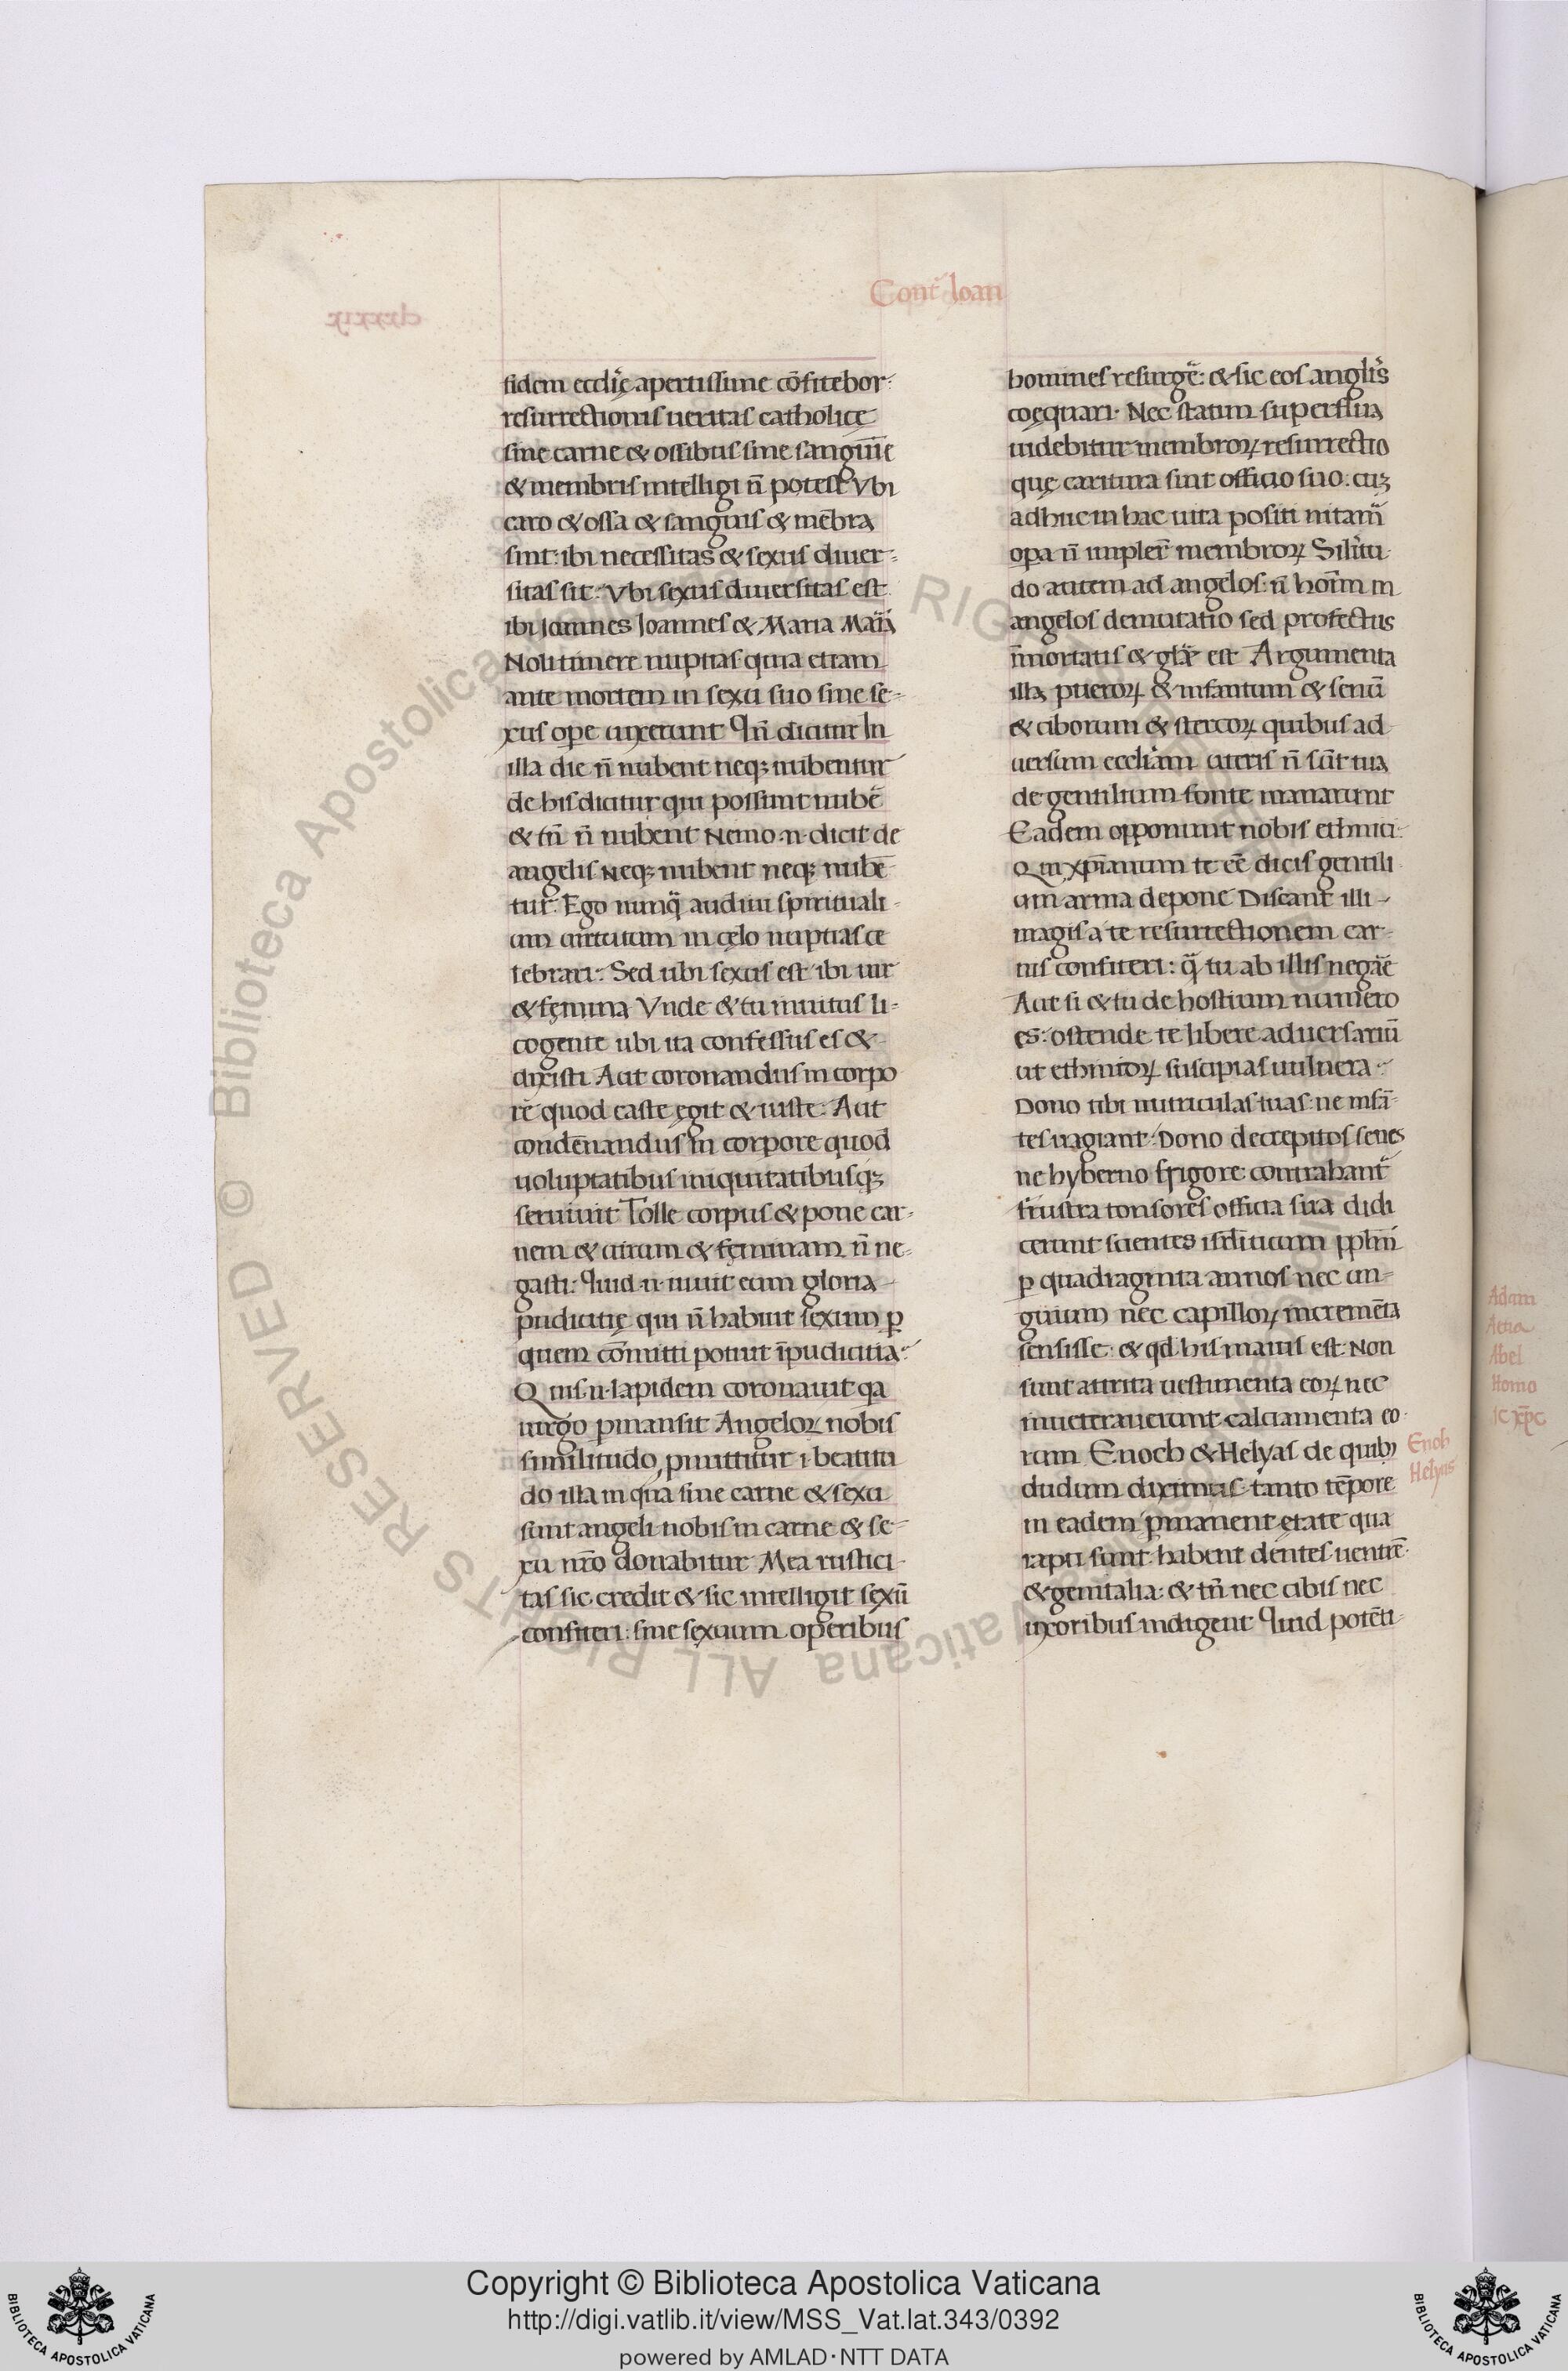 Cont̄ Ioan
fidem eccl'ię apertissime cōfitebor:
resurrectionis ueritas catholicę
sine carne & ossibus sine sanguīe
& membris intelligi n̄ potest Vbi
caro & ossa & sanguis & mēbra
sint: ibi necessitas & sexus diuer-
sitas sit: Vbi sexus diuersitas est
ibi Ioannes Ioannes & Maria Maria
Noli timere nuptias quia etiam
ante mortem in sexu suo sine se-
xus ope uixerunt Qn̄ dicitur In
illa die n̄ nubent neq; nubentur
de his dicitur qui possunt nubē
& tn̄ n̄ nubent Nemo .n. dicit de
angelis Neq; nubent neq; nubē
tur. Ego nunq̄ audiui spirituali-
um uirtutum in cęlo nuptias ce
lebrari: Sed ubi sexus est ibi uir
& fęmina Vnde & tu inuitus li-
cogente ubi ita confessus es &
dixisti Aut coronandus in corpo
re quod caste egit & iuste: Aut
condēnandus in corpore quod
uoluptatibus iniquitatibusq;
seruiuit Tolle corpus & pone car-
nem & uirum & fęminam n̄ ne-
gasti: Quid .n. uiuit cum gloria
pudicitię qui n̄ habuit sexum p̱
quem cōmitti potuit īpudicitia:
Quis .n. lapidem coronauit qa
uirgo p̱mansit Angeloꝝ nobis
similitudo p̱mittitur .i. beatitu
do illa in qua sine carne & sexu
sunt angeli nobis in carne & se-
xu nr̄o donabitur Mea rustici-
tas sic credit & sic intelligit sexū
confiteri: sine sexuum operibus
homines resurgē: & sic eos angl'is
coęquari. Nec statim superflua
uidebitur membroꝝ resurrectio
quę caritura sint officio suo: cuz
adhuc in hac uita positi nitam̄
opa n̄ implere membroꝝ Sil'itu-
do autem ad angelos: n̄ hoīm in
angelos demutatio sed profectus
īmortatis & gl'ę est Argumenta
illa pueroꝝ & infantum & senū
& ciborum & stercoꝝ quibus ad
uersum eccl'iam uteris n̄ sūt tua
de gentilium fonte manarunt
Eadem opponunt nobis ethnici:
Qui xp̄ianum te eē dicis gentili
um arma depone Discant illi-
magis a te resurrectionem car-
nis confiteri: q̄ tu ab illis negāe
Aut si & tu de hostium numero
es: ostende te libere aduersariū
ut ethnicoꝝ suscipias uulnera:
Dono tibi nutriculas tuas: ne infā-
tes uagiant: Dono decrepitos senes
ne hyberno frigore contrahant̄
frustra tonsores officia sua didi
cerunt scientes isr̄liticum pp̄lm̄
p̱ quadraginta annos nec un-
guium nec capilloꝝ incremēta
sensisse: & qd his maius est: Non
sunt attrita uestimenta eoꝝ nec
inueterauerunt calciamenta eo-
rum Enoch & Helyas de quibꝫ
dudum diximus tanto tēpore
in eadem p̱manent etate qua
rapti sunt: habent dentes uentrē
& genitalia: & tn̄ nec cibis nec
uxoribus indigent Quid potēti-
Enoh
Helyas
Adam
Abel
Homo
Copyright © Biblioteca Apostolica Vaticana
http://digi.vatlib.it/view/MSS_Vat.lat.343/0392
powered by AMLAD·NTT DATA
BIBLIOTECA APOSTOLICA VATICANA
BIBLIOTECA APOSTOLICA VATICANA
© Biblioteca Apostolica Vaticana ALL RIGHTS RESERVED